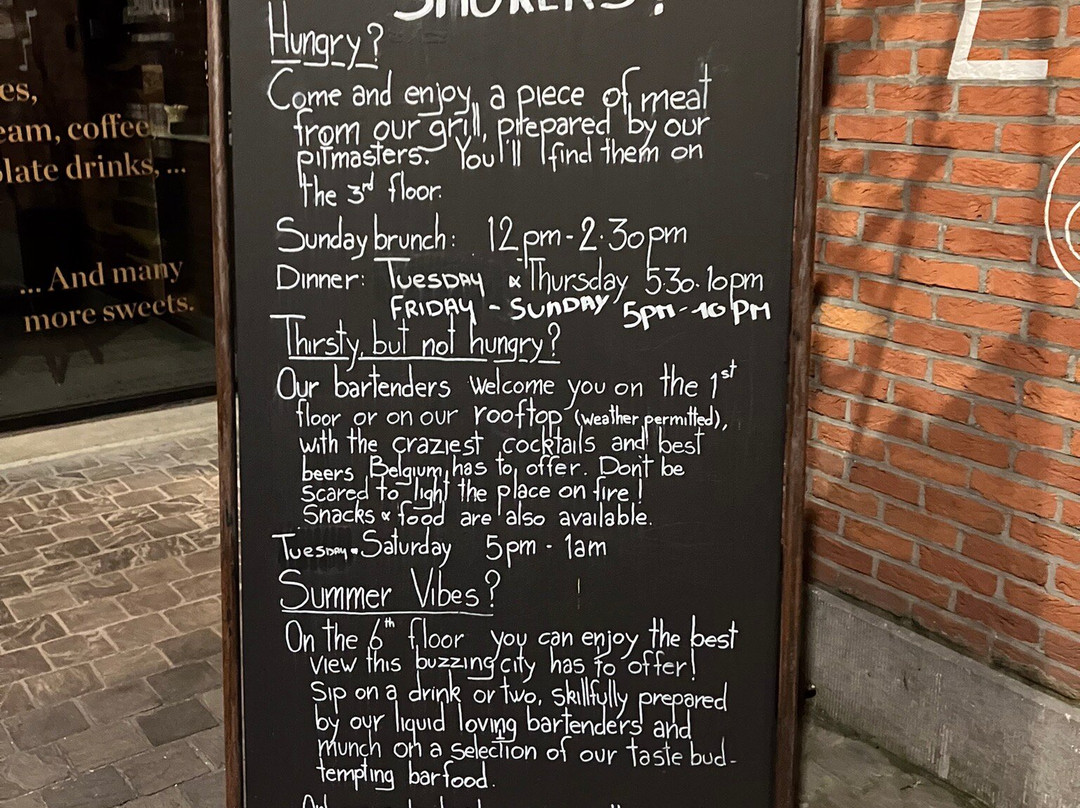 SMOKERS?
Hungry?
Come and enjoy a piece of meat
from our grill, prepared by our
pitmasters. You'll find them on
the 3rd floor.
Sunday brunch: 12pm-2.30pm
Dinner: TUESDAY & Thursday 5.30-10pm
FRIDAY - SUNDAY 5pm-10PM
Thirsty, but not hungry?
Our bartenders welcome you on the 1st
floor or on our rooftop (weather permitted),
with the craziest cocktails and best
beers Belgium has to offer. Don't be
scared to light the place on fire!
Snacks & food are also available.
TUESDAY - Saturday 5pm - 1am
Summer Vibes?
On the 6th floor you can enjoy the best
view this buzzing city has to offer!
Sip on a drink or two, skillfully prepared
by our liquid loving bartenders and
munch on a selection of our taste bud-
tempting barfood.
es,
eam, coffee
late drinks, ...
... And many
more sweets.